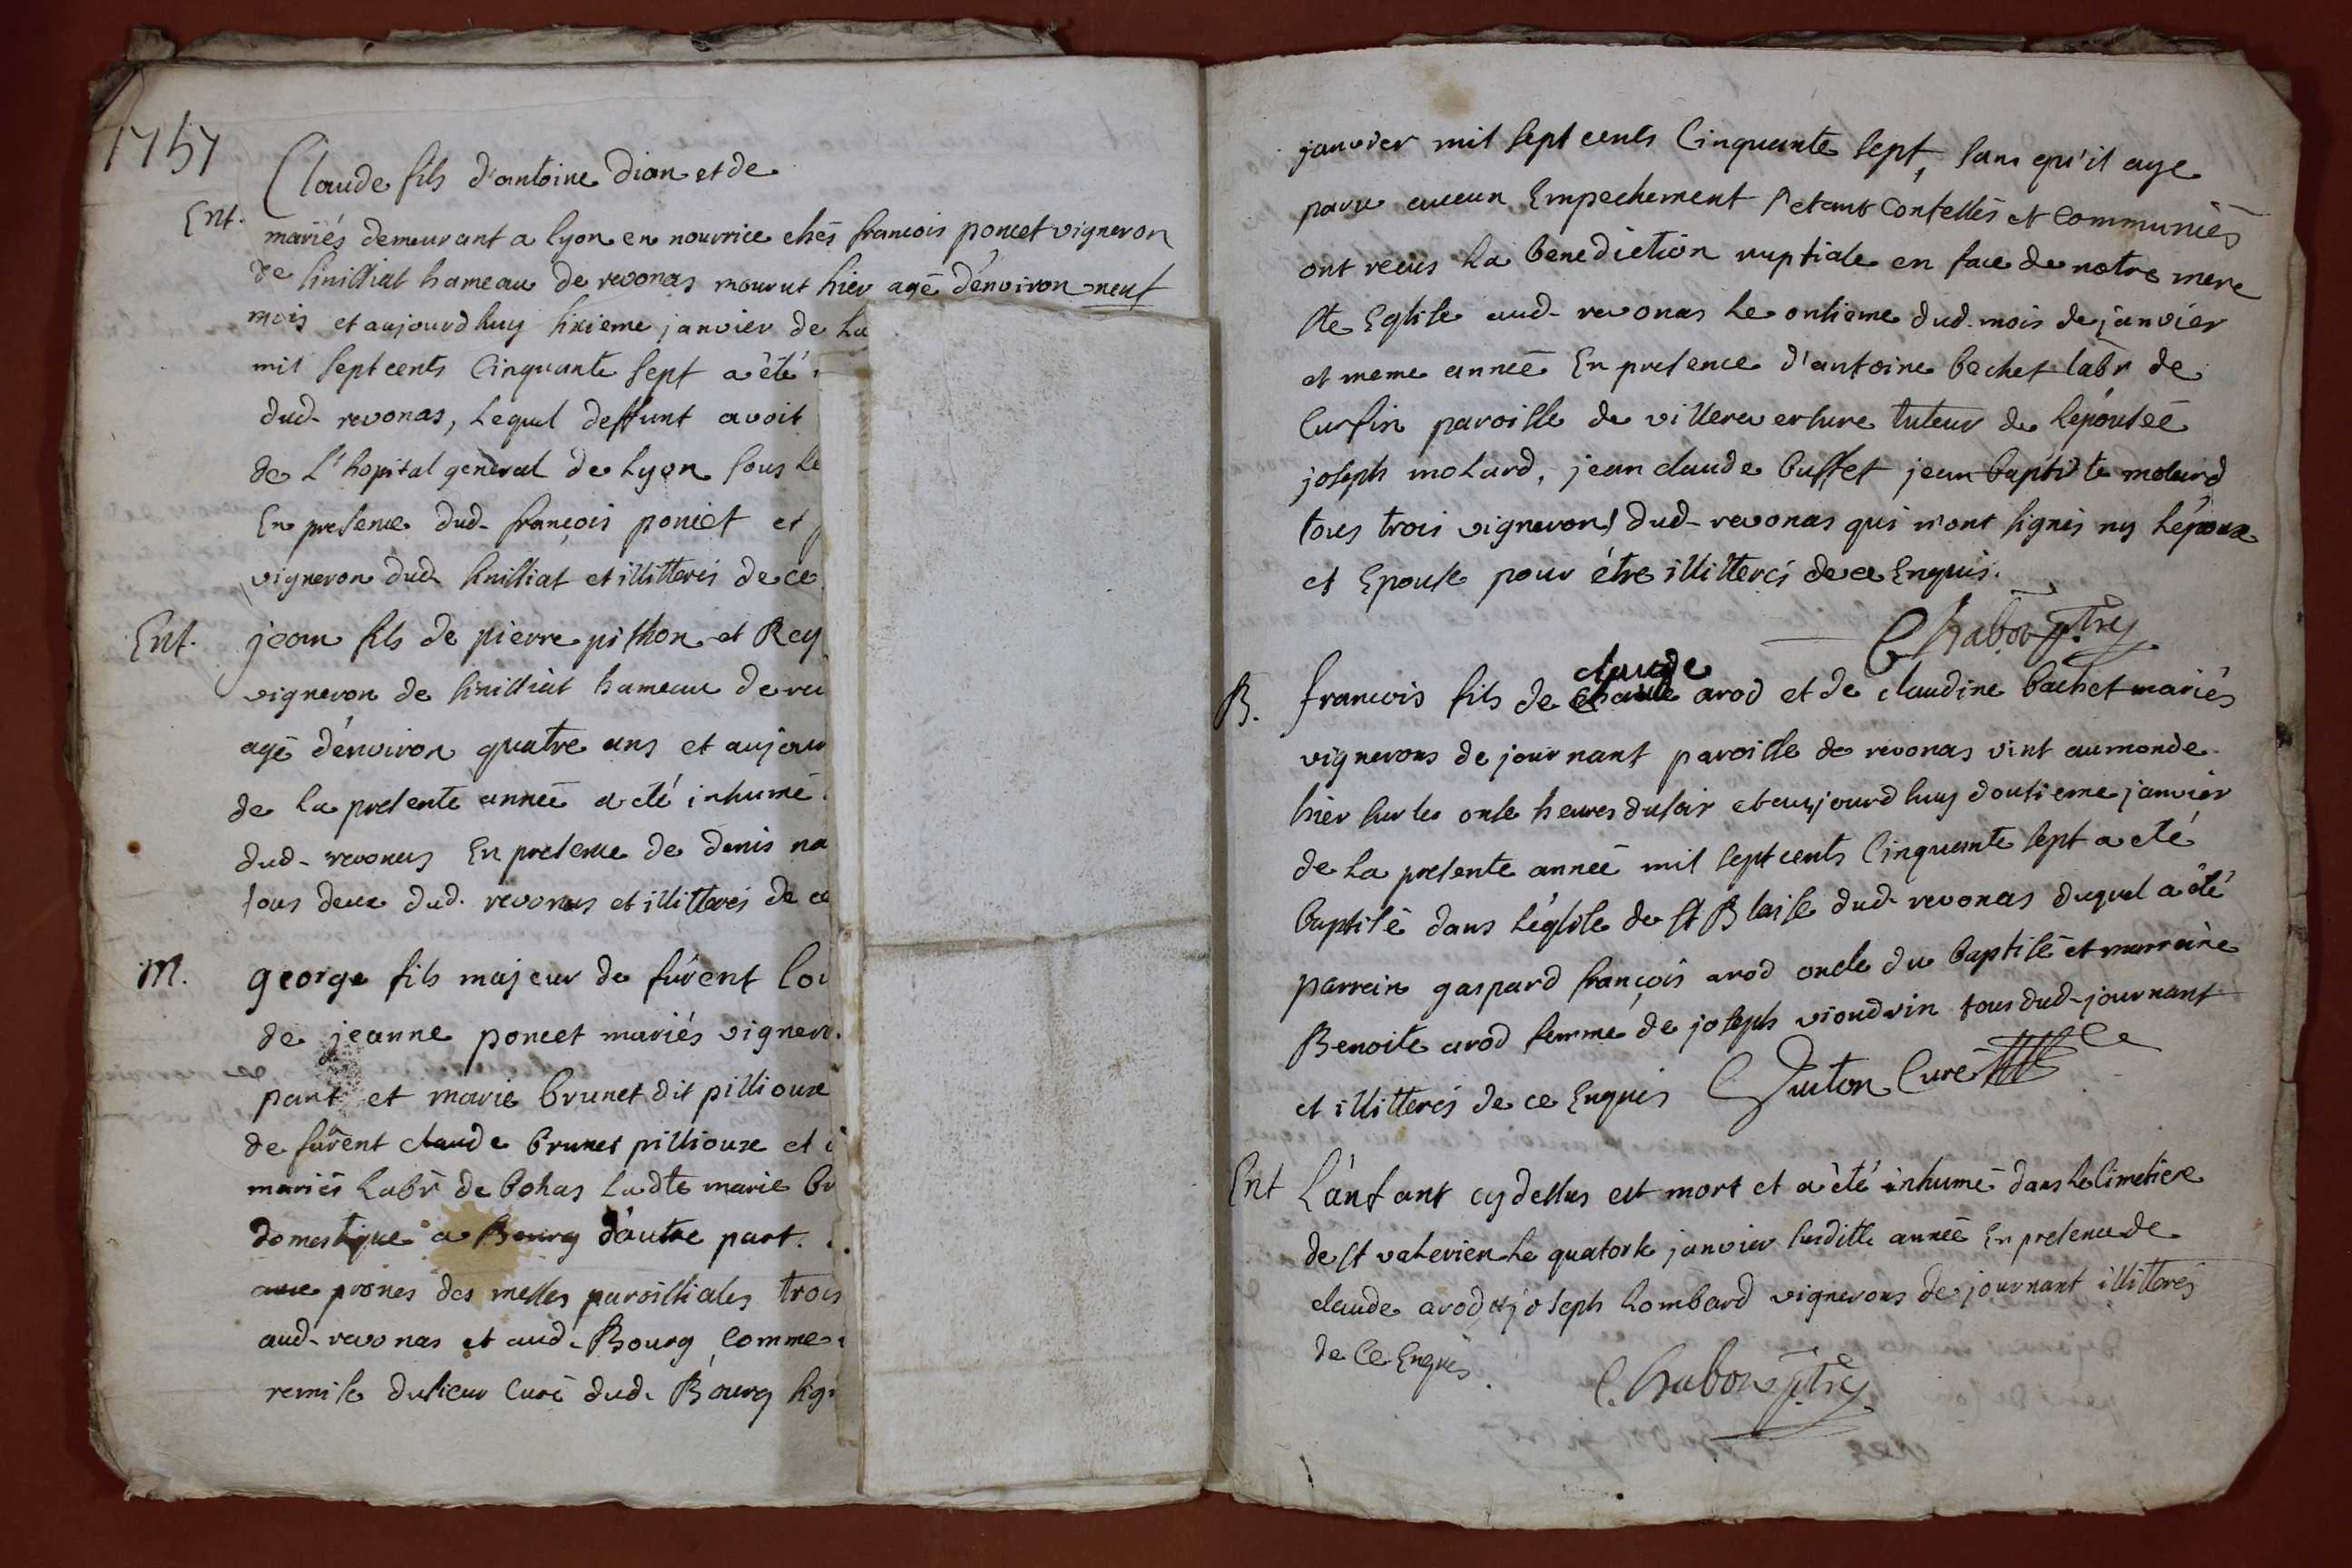 1757
Claude fils d'antoine dian et de
Ent. mariés demeurant a lyon en nourrice chés francois poncet vigneron
de Sinilliat hameau de revonas mourut hier agé d'environ neuf
mois et aujourdhuy sixieme janvier de la
mil sept cents Cinquante sept a èté
dud. revonas, lequel deffunt avoit
de L'hopital general de Lyon sous le
En presence dud. françois poncet et
vigneron dud. Sinilliat et illitterés de ce
Ent. jean fils de pierre pithon et Rey
vigneron de Sinilliat hameau de rev
agé d'environ quatre ans et aujour
de la presente année a eté inhumé
dud. revonas En presence de denis na
tous deux dud. revonas et illitterés de ce
M. george fils majeur de furent lou
de jeanne poncet mariés vigner
part et marie brunet dit pilliouse
de furent claude brunet pilliouse et
mariés Labr de bohas Ladte marie br
domestique a Bourg d'autre part.
aux prones des messes paroissiales trois
aud. revonas et aud. Bourg Comme
remise du sieur Curé dud. Bourg sig
janvier mil sept cents Cinquante sept, sans qu'il aye
paru aucun Empechement s'etant confessés et communiés
ont recus la benediction nuptiale en face de notre mere
ste Eglise aud. revonas le onsieme dud. mois de janvier
et meme année En presence d'antoine bechet labr de
Cursin paroisse de villereversure tuteur de l'épousée
joseph molard, jean claude buffet jean baptiste molard
tous trois vignerons dud. revonas qui n'ont signés ny l'époux
et Epouse pour étre illitterés de ce Enquis.
Chabou ptre
claude
B. francois fils de arod et de claudine bachet mariés
vignerons de journant paroisse de revonas vint au monde
hier sur les onse heures du soir et aujourdhuy dousieme janvier
de la presente année mil sept cents Cinquante sept a eté
baptisé dans l'église de st Blaise dud. revonas duquel a été
parrein gaspard françois arod oncle du baptisé et marreine
Benoite arod femme de joseph vioudrin tous dud. journant
et illitterés de ce Enquis Guiton Curé
Ent L'anfant cy dessus est mort et a èté inhumé dans le Cimetiere
de st valerien le quatorse janvier susditte année En presence de
claude arod et joseph Lombard vignerons de journant illitterés
de Ce Enquis.
Chabou ptre